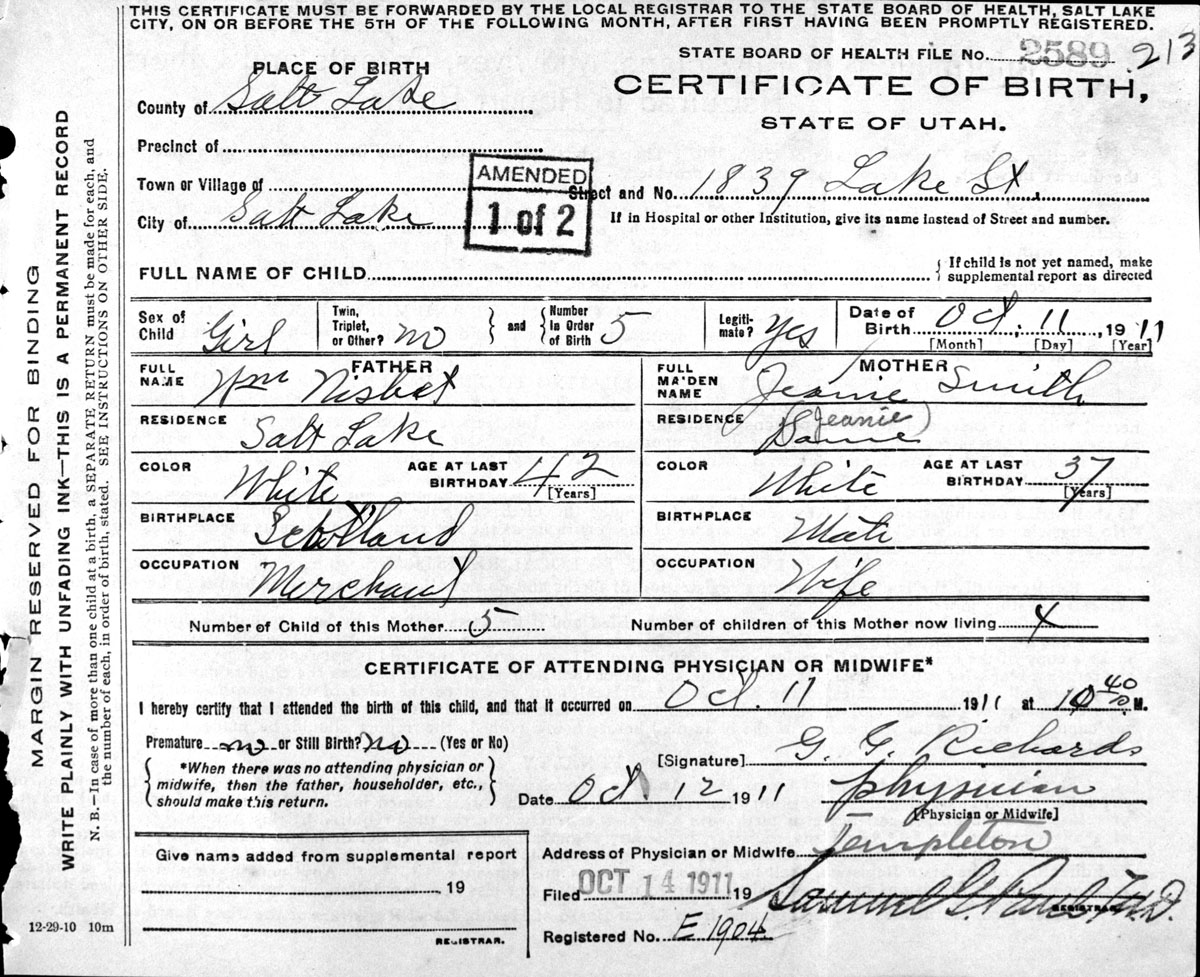 THIS CERTIFICATE MUST BE FORWARDED BY THE LOCAL REGISTRAR TO THE STATE BOARD OF HEALTH, SALT LAKE
CITY, ON OR BEFORE THE 5TH OF THE FOLLOWING MONTH, AFTER FIRST HAVING BEEN PROMPTLY REGISTERED.
STATE BOARD OF HEALTH FILE No. 2589 213
PLACE OF BIRTH
CERTIFICATE OF BIRTH,
STATE OF UTAH.
County of Salt Lake
Precinct of
Town or Village of
AMENDED
1 of 2
Street and No. 1839 Lake St.
City of Salt Lake
If in Hospital or other Institution, give its name instead of Street and number.
FULL NAME OF CHILD
{ If child is not yet named, make
supplemental report as directed
Sex of Child Girl
Twin, Triplet, or Other? no
} and { Number in Order of Birth 5
Legitimate? Yes
Date of Birth Oct. 11, 1911
[Month] [Day] [Year]
FATHER
FULL NAME Wm Nisbet
MOTHER
FULL MAIDEN NAME Jeanie Smith
RESIDENCE Salt Lake
RESIDENCE Same (Jeanie)
COLOR White
AGE AT LAST BIRTHDAY 42
[Years]
COLOR White
AGE AT LAST BIRTHDAY 37
[Years]
BIRTHPLACE Scotland
BIRTHPLACE
OCCUPATION Merchant
OCCUPATION Wife
Number of Child of this Mother 5
Number of children of this Mother now living 4
CERTIFICATE OF ATTENDING PHYSICIAN OR MIDWIFE*
I hereby certify that I attended the birth of this child, and that it occurred on Oct. 11 1911 at 10 40 M.
Premature no or Still Birth? No (Yes or No)
{ *When there was no attending physician or
midwife, then the father, householder, etc.,
should make this return. }
[Signature] G. G. Richards
Date Oct 12 1911
physician
[Physician or Midwife]
Give name added from supplemental report
, 19
REGISTRAR.
Address of Physician or Midwife Templeton
Filed OCT 14 1911 19
Samuel G. Paul M.D.
REGISTRAR.
Registered No. E 1904
12-29-10 10m
MARGIN RESERVED FOR BINDING
WRITE PLAINLY WITH UNFADING INK—THIS IS A PERMANENT RECORD
N. B.—In case of more than one child at a birth, a SEPARATE RETURN must be made for each, and
the number of each, in order of birth, stated. SEE INSTRUCTIONS ON OTHER SIDE.